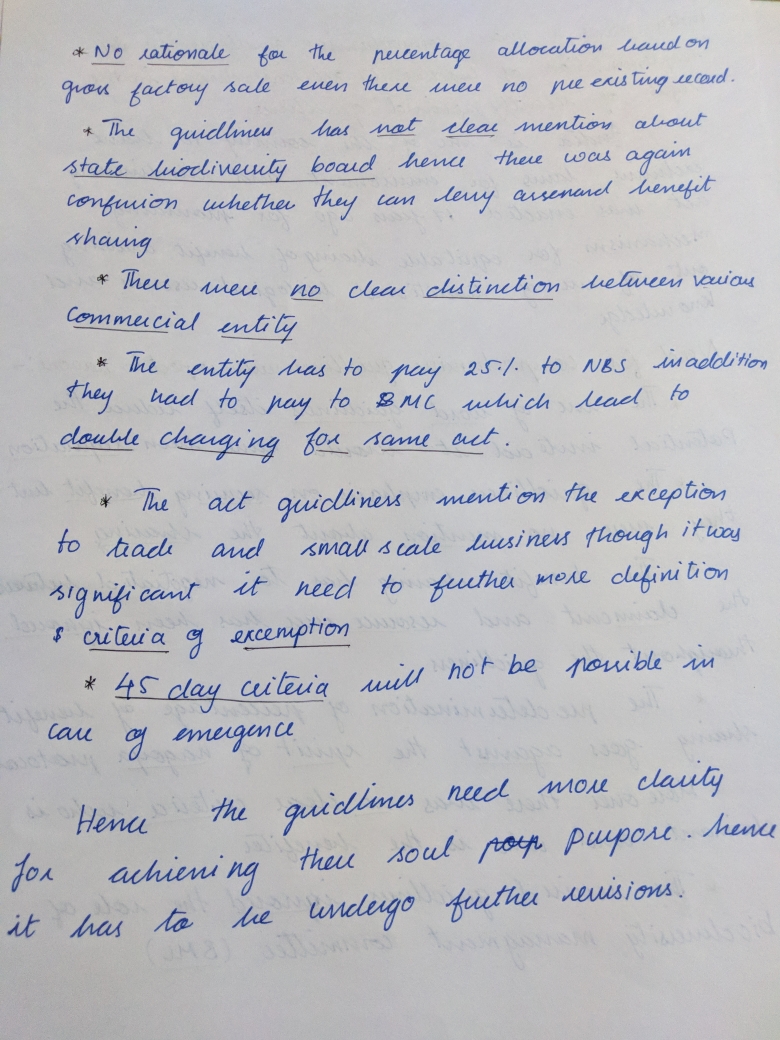 * No rationale for the percentage allocation based on
gross factory sale even there were no pre existing record.
* The guidlines has not clear mention about
state biodiversity board hence there was again
confusion whether they can levy and benefit
sharing
* There were no clear distinction between various
commercial entity
* The entity has to pay 25% to NBS inaddition
they had to pay to BMC which lead to
double charging for same act.
* The act guidlines mention the exception
to trade and small scale business though it was
significant it need to further more definition
& criteria of excemption
* 45 day criteria will not be possible in
case of emergence
Hence the guidlines need more clarity
for achieving there soul purpose. hence
it has to be undergo further revisions.